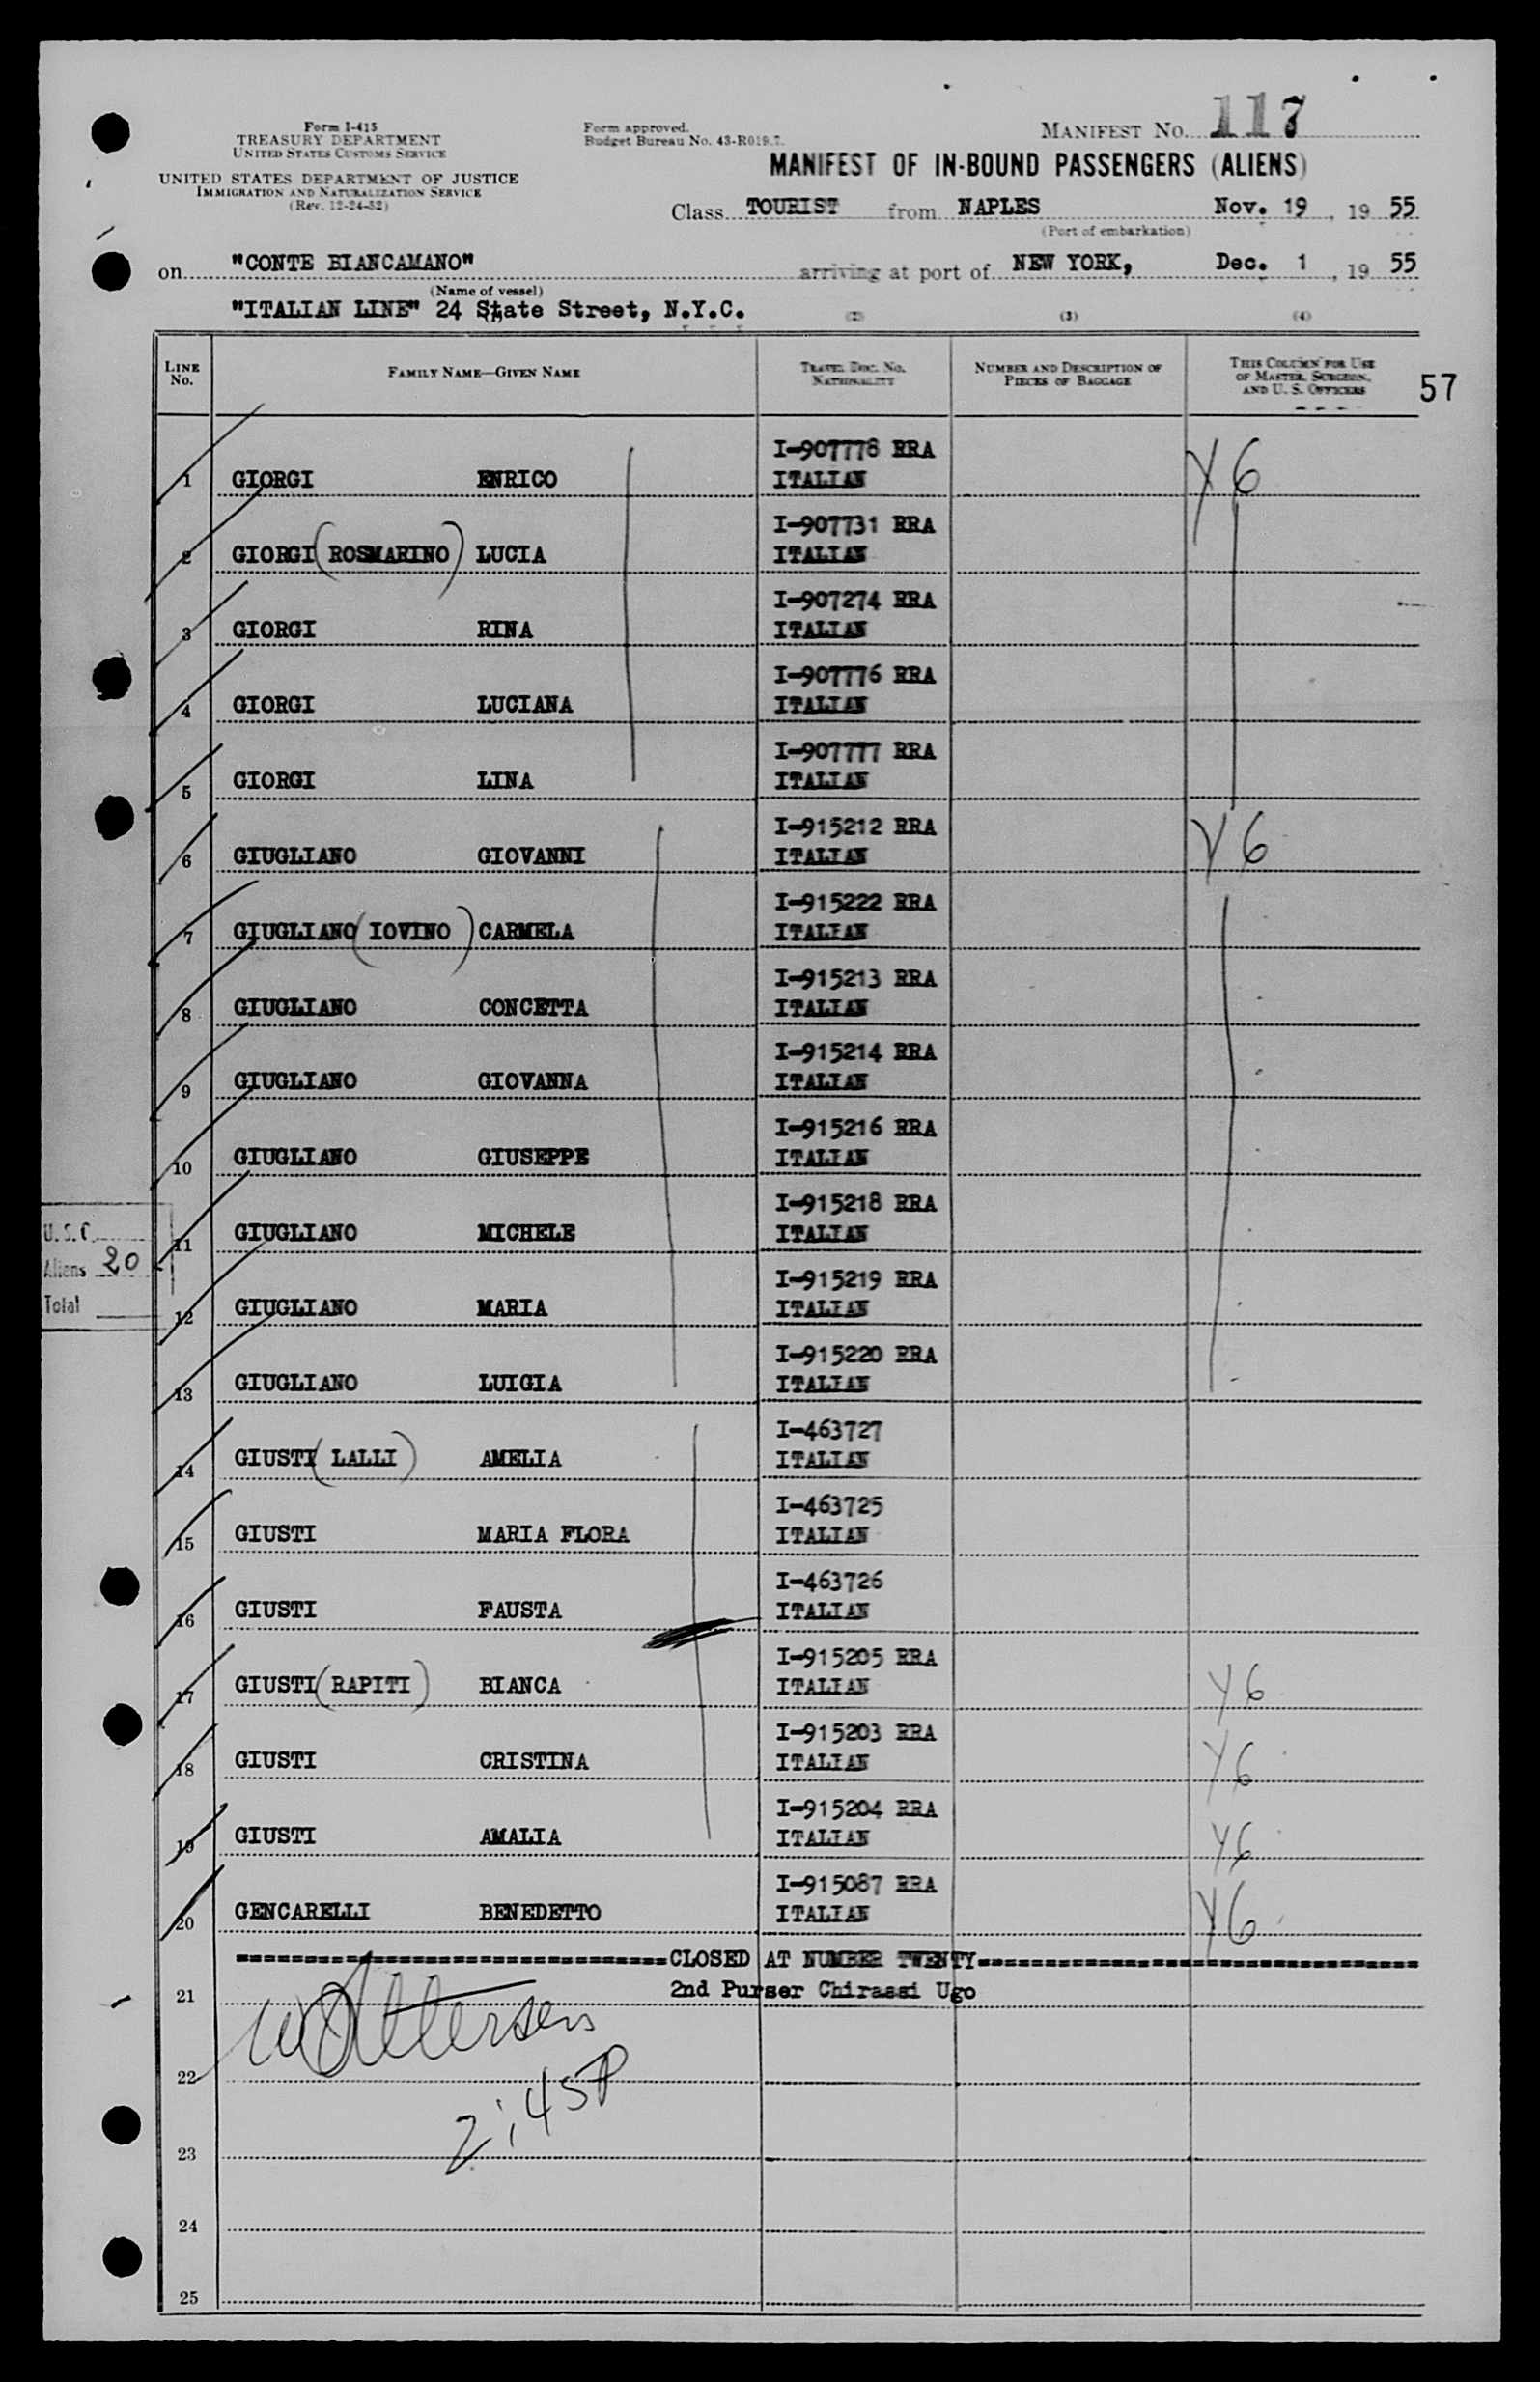 Form I-415
TREASURY DEPARTMENT
UNITED STATES CUSTOMS SERVICE
UNITED STATES DEPARTMENT OF JUSTICE
IMMIGRATION AND NATURALIZATION SERVICE
(Rev. 12-24-52)
Form approved.
Budget Bureau No. 43-R019.7.
MANIFEST NO. 117
MANIFEST OF IN-BOUND PASSENGERS (ALIENS)
Class TOURIST from NAPLES Nov. 19, 19 55
(Port of embarkation)
on "CONTE BIANCAMANO" arriving at port of NEW YORK, Dec. 1, 19 55
(Name of vessel)
"ITALIAN LINE" 24 State Street, N.Y.C.
(2) (3) (4)
LINE No. FAMILY NAME—GIVEN NAME TRAVEL DOC. NO. NATIONALITY NUMBER AND DESCRIPTION OF PIECES OF BAGGAGE THIS COLUMN FOR USE OF MASTER, SURGEON, AND U. S. OFFICERS 57
I-907778 RRA
1 GIORGI ENRICO ITALIAN Y6
I-907731 RRA
2 GIORGI (ROSMARINO) LUCIA ITALIAN
I-907274 RRA
3 GIORGI RINA ITALIAN
I-907776 RRA
4 GIORGI LUCIANA ITALIAN
I-907777 RRA
5 GIORGI LINA ITALIAN
I-915212 RRA
6 GIUGLIANO GIOVANNI ITALIAN Y6
I-915222 RRA
7 GIUGLIANO (IOVINO) CARMELA ITALIAN
I-915213 RRA
8 GIUGLIANO CONCETTA ITALIAN
I-915214 RRA
9 GIUGLIANO GIOVANNA ITALIAN
I-915216 RRA
10 GIUGLIANO GIUSEPPE ITALIAN
I-915218 RRA
11 GIUGLIANO MICHELE ITALIAN
U. S. C.
Aliens 20
Total
I-915219 RRA
12 GIUGLIANO MARIA ITALIAN
I-915220 RRA
13 GIUGLIANO LUIGIA ITALIAN
I-463727
14 GIUSTI (LALLI) AMELIA ITALIAN
I-463725
15 GIUSTI MARIA FLORA ITALIAN
I-463726
16 GIUSTI FAUSTA ITALIAN
I-915205 RRA
17 GIUSTI (RAPITI) BIANCA ITALIAN Y6
I-915203 RRA
18 GIUSTI CRISTINA ITALIAN Y6
I-915204 RRA
19 GIUSTI AMALIA ITALIAN Y6
I-915087 RRA
20 GENCARELLI BENEDETTO ITALIAN Y6
CLOSED AT NUMBER TWENTY
21 2nd Purser Chirassi Ugo
22
2:45P
23
24
25